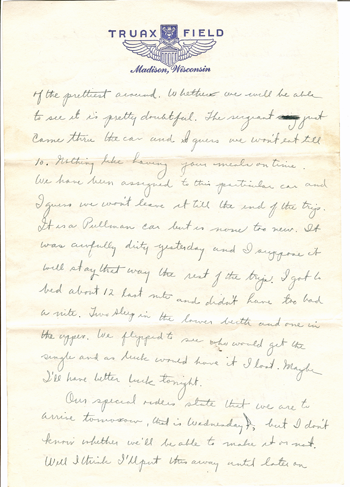 TRUAX FIELD
Madison, Wisconsin
of the prettiest around. Whether we will be able
to see it is pretty doubtful. The sergeant just
came thru the car and I guess we won't eat till
10. Nothing like having your meals on time.
We have been assigned to this particular car and
I guess we won't leave it till the end of the trip.
It is a Pullman car but is none too new. It
was awfully dirty yesterday and I suppose it
will stay that way the rest of the trip. I got to
bed about 12 last nite and didn't have too bad
a nite. Two sleep in the lower berth and one in
the upper. We flipped to see who would get the
single and as luck would have it I lost. Maybe
I'll have better luck tonight.
Our special orders state that we are to
arrive tomorrow, that is Wednesday, but I don't
know whether we'll be able to make it or not.
Well I think I'll put this away until later on